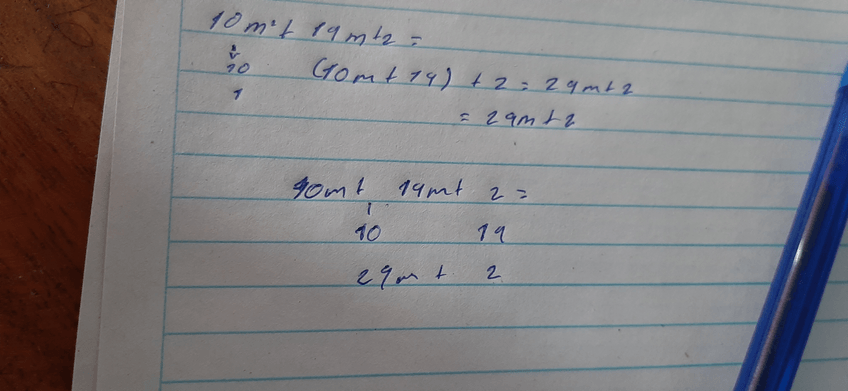 10m²+ 19m+2 =
10 (10m + 19) + 2 = 29m+2
1 = 29m+2
10m+ 19m+ 2 =
10 19
29m + 2